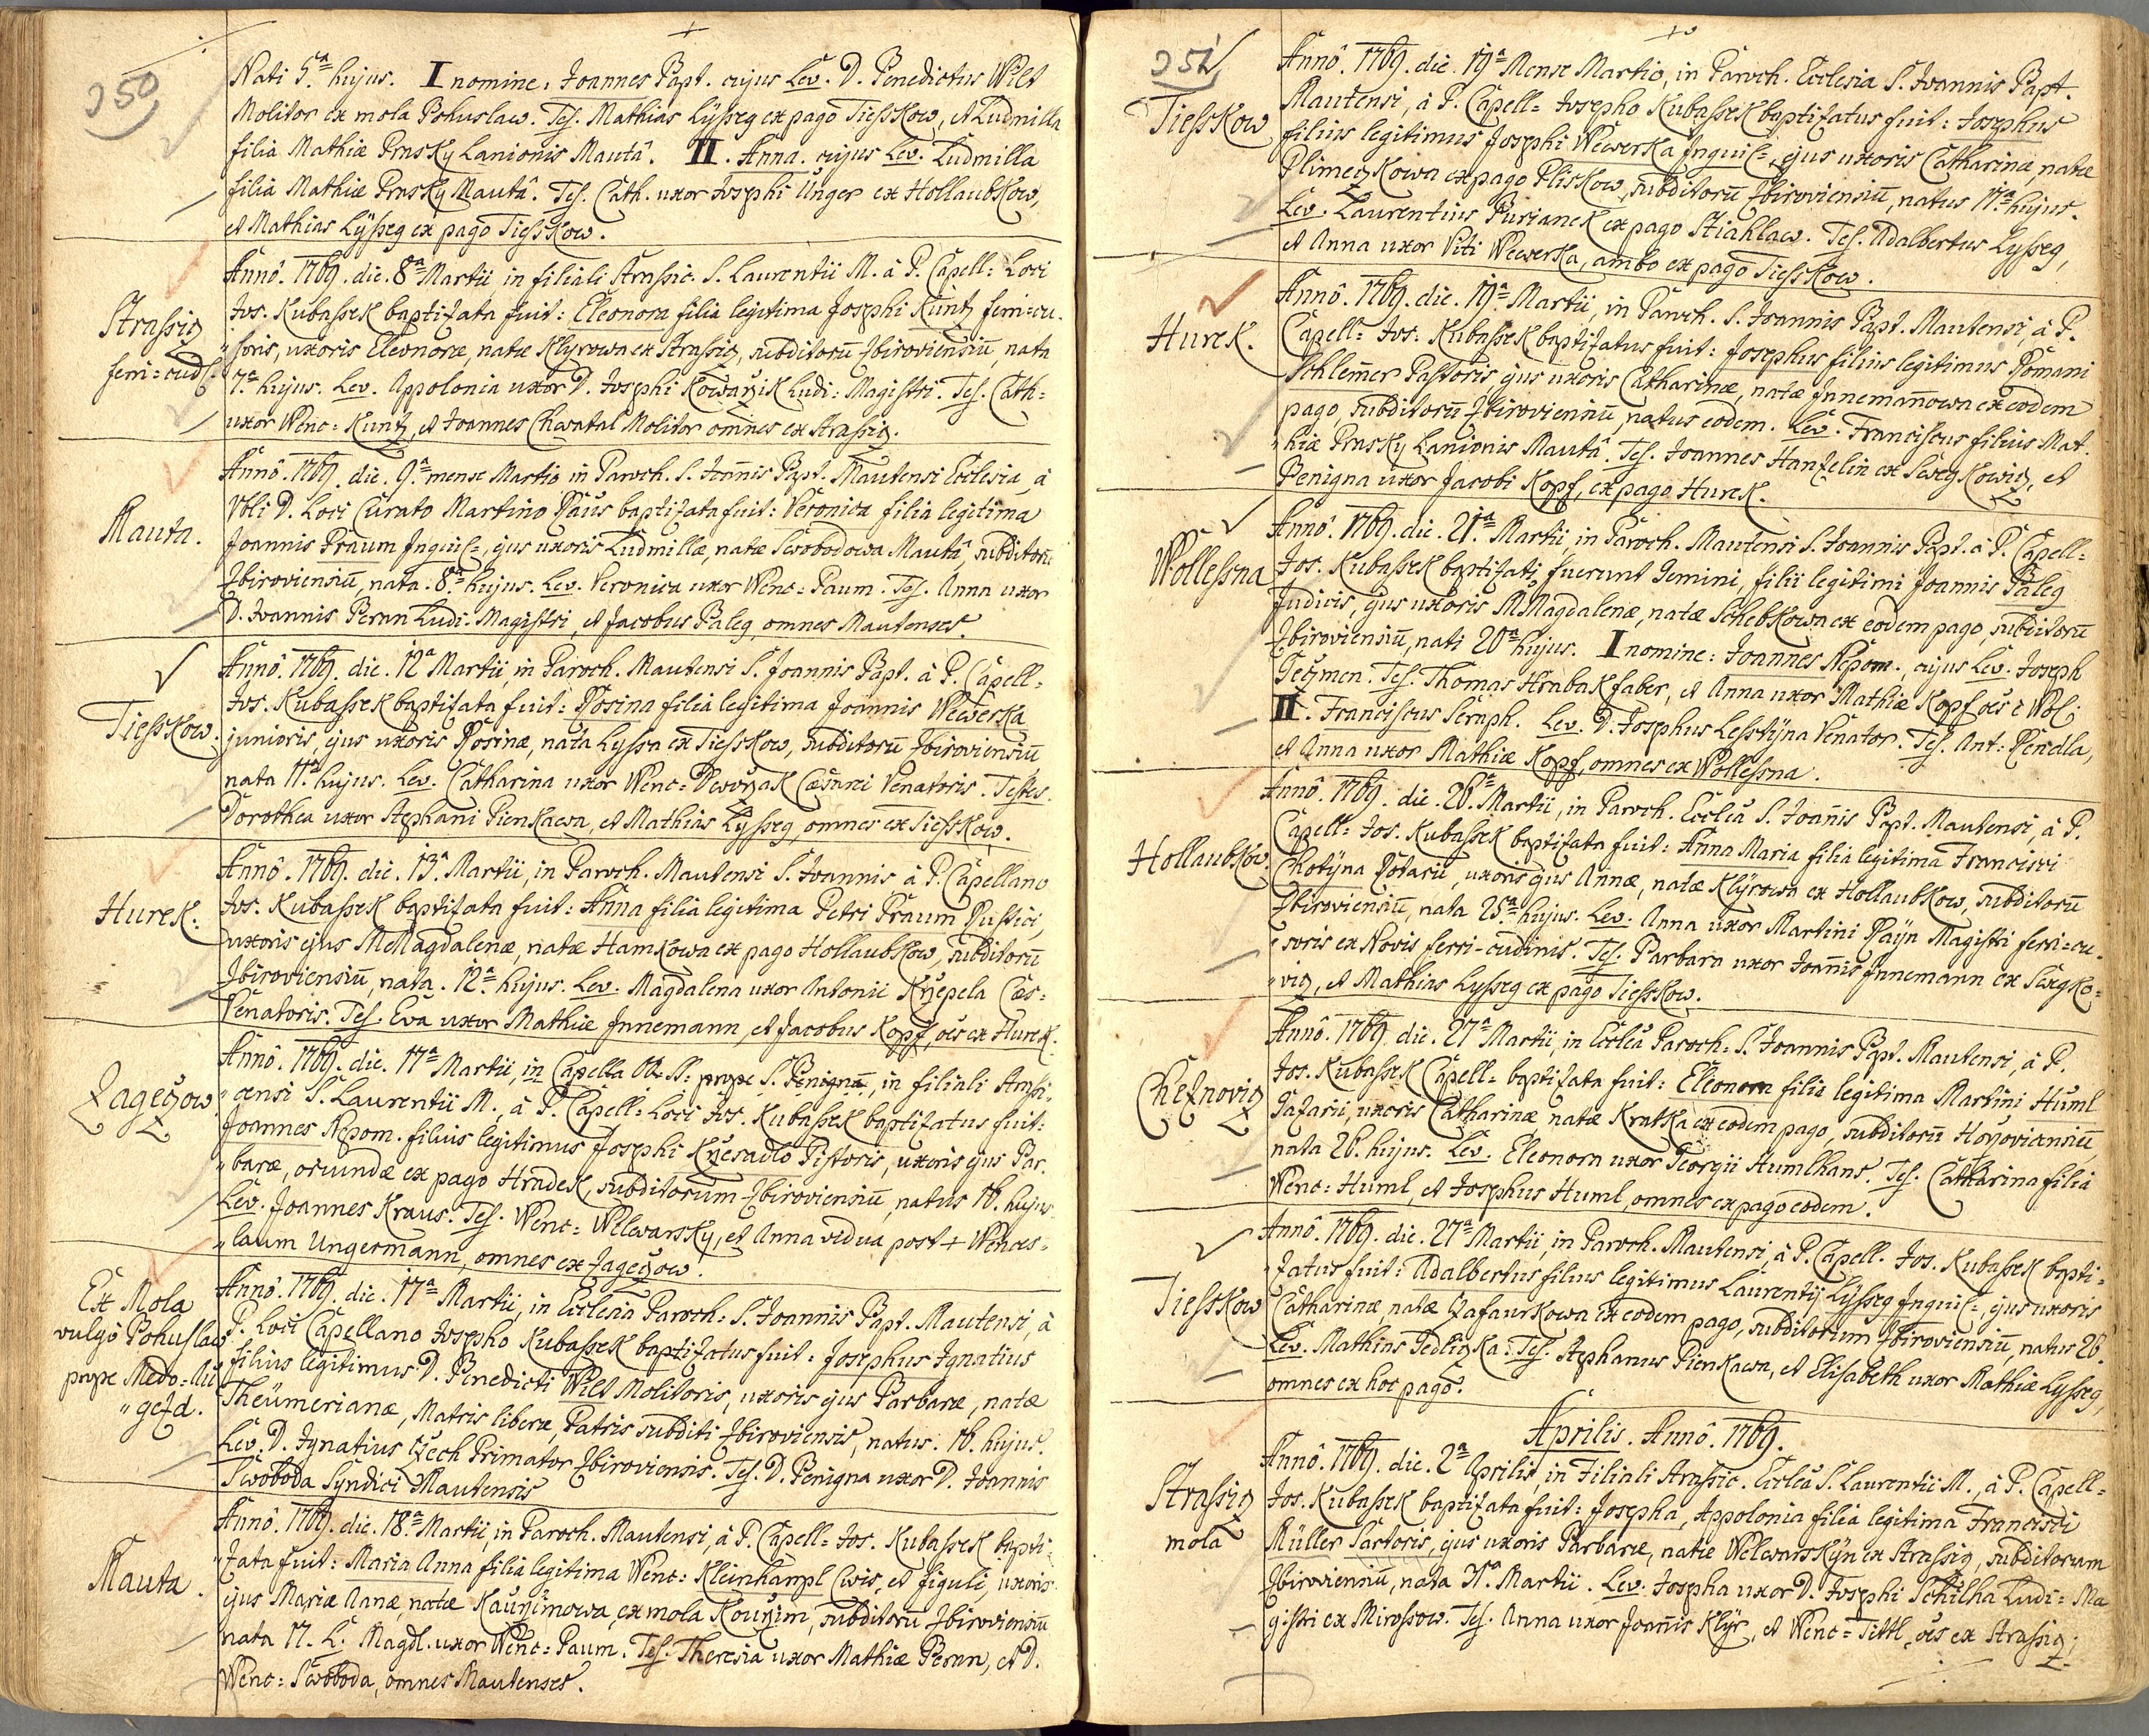 350
Nati 5ª hujus. I nomine, Joannes Bapt. cujus Lev. D. Benedictus Wilt
Molitor ex mola Bohuslaw. Tes. Mathias Lÿsseg ex pago Tiesskow, et Ludmilla
filia Mathiæ Prusky Lanionis Mautâ. II. Anna. cujus Lev. Ludmilla
filia Mathiæ Prusky Mautâ. Tes. Cath. uxor Josephi Unger ex Hollaubkow,
et Mathias Lÿsseg ex pago Tiesskow.
Strassicz
ferri=cud.
Añô. 1769. die. 8ª Martii in filiali Strassic. S. Laurentii M. â P. Capell: Loci
Jos. Kubassek baptizata fuit: Eleonora filia legitima Josephi Kuntz ferri=cu
"soris, uxoris Eleonoræ, natæ Klyrowa ex Strassicz, subditorū Zbiroviensiū, nata
7ª hujus. Lev. Appolonia uxor D. Josephi Kowarzik Ludi: Magistri. Tes. Cath=
uxor Wenc= Kuntz, et Joannes Chwatal Molitor omnes ex Strassicz.
Mauta.
Añô. 1769. die. 9ª mense Martio in Paroch. S. Joañis Bapt. Mautensi Ecclesia, â
Vbli D. Loci Curato Martino Paus baptizata fuit: Veronica filia legitima
Joannis Praum Inquil=, ejus uxoris Ludmillæ, natæ Swobodowa Mautâ, subditorū
Zbiroviensiū, nata. 8ª hujus. Lev. Veronica uxor Wenc= Paum. Tes. Anna uxor
D. Joannis Pernn Ludi-Magistri, et Jacobus Paleg, omnes Mautenses.
Tiesskow.
Añô. 1769. die. 12ª Martii, in Paroch. Mautensi S. Joannis Bapt. â P. Capell=
Jos. Kubassek baptizata fuit: Rosina filia legitima Joannis Wewerka
junioris, ejus uxoris Rosinæ, nata Lyssa ex Tiesskow, subditorū Zbiroviensiū
nata 11ª hujus. Lev. Catharina uxor Wenc= Dworzak Cæsarei Venatoris. Testes.
Dorothea uxor Stephani Pienkawa, et Mathias Lÿsseg, omnes ex Tiesskow.
Hurek.
Añô. 1769. die. 13ª Martii, in Paroch. Mautensi S. Joannis, â P. Capellano
Jos. Kubassek baptizata fuit: Anna filia legitima Petri Praum Rustici,
uxoris ejus M Magdalenæ, natæ Hamkowa ex pago Hollaubkow, subditorū
Zbiroviensiū, nata. 12ª hujus. Lev: Magdalena uxor Antonii Krzepela Cæs=
Venatoris. Tes. Eva uxor Mathiæ Innemann, et Jacobus Kopf, oēs ex Hurek.
Zageczow
Añô. 1769. die. 17ª Martii, in Capella prope S. Benignā, in filiali Strassi=
"censi S. Laurentii M., â P. Capell: Loci Jos. Kubassek baptizatus fuit:
Joannes Nepom. filius legitimus Josephi Krzesadlo Pistoris, uxoris ejus Bar.
"baræ, oriundæ ex pago Hradek, subditorum Zbiroviensiū, natus 16. hujus
Lev. Joannes Kraus. Tes. Wenc= Welewarsky, et Anna vidua post + Wences=
"laum Ungermann, omnes ex Zageczow.
Ex Mola
vulgô Bohuslaw
prope Medo=Au
"gezd.
Añô. 1769. die. 17ª Martii, in Ecclesia Paroch= S. Joannis Bapt. Mautensi, â
P. Loci Capellano Josepho Kubassek baptizatus fuit: Josephus Ignatius
filius legitimus D. Benedicti Wilt Molitoris, uxoris ejus Barbaræ, natæ
Theümerianæ, Matris liberæ, Patris subditi Zbiroviensis, natus. 16. hujus.
Lev. D. Ignatius Czech Primator Zbiroviensis. Tes. D. Benigna uxor D. Joannis
Swoboda Syndici Mautensis
Mauta.
Añô. 1769. die. 18ª Martii, in Paroch. Mautensi, â P. Capell= Jos. Kubassek bapti=
"zata fuit: Maria Anna filia legitima Wenc= Kleinhampl Civis, et figuli, uxoris
ejus Mariæ Annæ, natæ Kaurzimowa, ex mola Kourzim, subditorū Zbiroviensiū
nata 17. L. Magdl. uxor Wenc= Paum. Tes. Theresia uxor Mathiæ Pernn, et D.
Wenc= Swoboda, omnes Mautenses.
351
Tiesskow
Añô. 1769. die. 19ª Mense Martio, in Paroch. Ecclesia S. Joannis Bapt.
Mautensi, â P. Capell= Josepho Kubassek baptizatus fuit: Josephus
filius legitimus Josephi Wewerka Inquil=, ejus uxoris Catharinæ, natæ
Plimeczkowa ex pago Pliskow, subditorū Zbiroviensiū, natus 17ª hujus.
Lev. Laurentius Burianek ex pago Stiahlaw. Tes. Adalbertus Lysseg,
et Anna uxor Viti Wewerka, ambo ex pago Tiesskow.
Hurek.
Añô. 1769. die. 19ª Martii, in Paroch. S. Joannis Bapt. Mautensi, â P.
Capell= Jos. Kubassek baptizatus fuit: Josephus filius legitimus Romani
Schlem̄er Pastoris, ejus uxoris Catharinæ, natæ Innemañowa ex eodem
pago, subditorū Zbiroviensiū, natus eodem. Lev. Franciscus filius Mat.
"hiæ Prusky Lanionis Mautâ. Tes. Joannes Hanzelin ex Swegkowicz, et
Benigna uxor Jacobi Kopf, ex pago Hurek.
Wollessna
Añô. 1769. die. 21ª Martii, in Paroch. Mautensi S. Joannis Bapt. â P. Capell=
Jos. Kubassek baptizati fuerunt Gemini, filii legitimi Joannis Paleg
Judicis, ejus uxoris M Magdalenæ, natæ Schebkowa ex eodem pago, subditorū
Zbiroviensiū, nati 20ª hujus. I nomine: Joannes Nepom., cujus Lev. Joseph
Geczmen. Tes. Thomas Hrabak faber, et Anna uxor Mathiæ Kopf oēs è Wol:
II. Franciscus Seraph. Lev. D. Josephus Lesstÿna Venator. Tes. Ant: Rendla,
et Anna uxor Mathiæ Kopf, omnes ex Wollessna.
Hollaubkow.
Añô. 1769. die. 26ª Martii, in Paroch. Ecclēa S. Joañis Bapt. Mautensi, â P.
Capell= Jos. Kubassek baptizata fuit: Anna Maria filia legitima Francisci
Chotÿna Rotarii, uxoris ejus Annæ, natæ Klÿrowa ex Hollaubkow, subditorū
Zbiroviensiū, nata 25ª hujus. Lev. Anna uxor Martini Raÿn Magistri ferri=cu.
"soris ex Novis ferri-cudinis. Tes. Barbara uxor Joañis Innemann ex Swegko=
"vicz, et Mathias Lysseg ex pago Tiesskow.
Cheznovicz
Añô. 1769. die. 27ª Martii, in Ecclēa Paroch= S. Joannis Bapt. Mautensi, â P.
Jos. Kubassek Capell= baptizata fuit: Eleonora filia legitima Martini Huml
Gazarii, uxoris Catharinæ natæ Kratka ex eodem pago, subditorū Horzoviensiū,
nata 26. hujus. Lev. Eleonora uxor Georgii Humlhans. Tes. Catharina filia
Wenc= Huml, et Josephus Huml, omnes ex pago eodem.
Tiesskow
Añô. 1769. die. 27ª Martii, in Paroch. Mautensi, â P. Capell. Jos. Kubassek bapti=
"zatus fuit: Adalbertus filius legitimus Laurentij Lÿsseg Inquil=, ejus uxoris
Catharinæ, natæ Czafaurkowa ex eodem pago, subditorum Zbiroviensiū, natus 26.
Lev. Mathias Jedliczka. Tes. Stephanus Pienkawa, et Elisabeth uxor Mathiæ Lysseg,
omnes ex hoc pagô.
Aprilis. Annô. 1769.
Strassicz
mola
Añô. 1769. die. 2ª Aprilis, in Filiali Strassic. Ecclēa S. Laurentii M., â P. Capell=
Jos. Kubassek baptizata fuit: Josepha, Appolonia filia legitima Francisci
Müller Sartoris, ejus uxoris Barbaræ, natæ Welewarskÿn ex Strassicz, subditorum
Zbiroviensiū, nata 31ª Martii. Lev. Josepha uxor D. Josephi Schilha Ludi=Ma
gistri ex Mirossow. Tes. Anna uxor Joañis Klÿr, et Wenc= Tittl, oēs ex Strassicz.